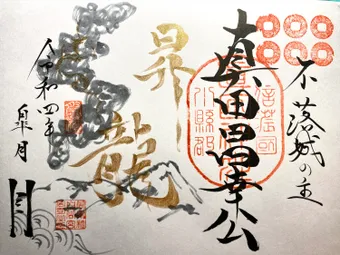 不落城の主
真田昌幸公
信濃國
小縣郡
昇龍
令和四年
皐月